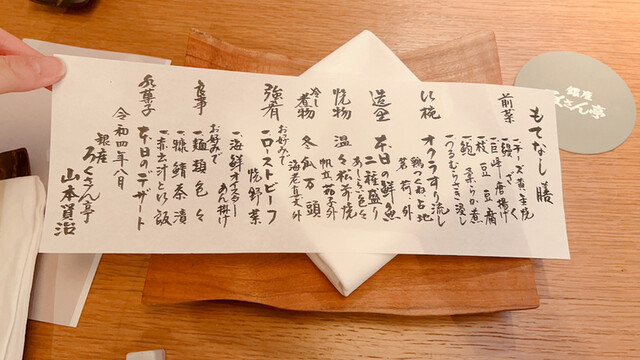 もてなし膳
前菜
一、チーズ黄金焼
一、鰻ざく
一、巨峰唐揚げ
一、枝豆豆腐
一、鮑柔らか煮
一、つるむらさき浸し
小椀
オクラすり流し
鶏つくね 占地
茗荷、外
造里
本日の鮮魚
二種盛り
あしらい色々
焼物
温々松茸焼
帆立 茄子 外
冷し煮物
冬瓜万頭
海老真丈 外
強肴
お好みで
一、ローストビーフ
焼野菜
一、海鮮オイスター
あん掛け
食事
お好みで
一、麺類色々
一、糠鯖茶漬
一、赤出汁と小飯
水菓子
本日のデザート
令和四年八月
銀座
ろくさん亭
山本賢治
銀座
くさん亭